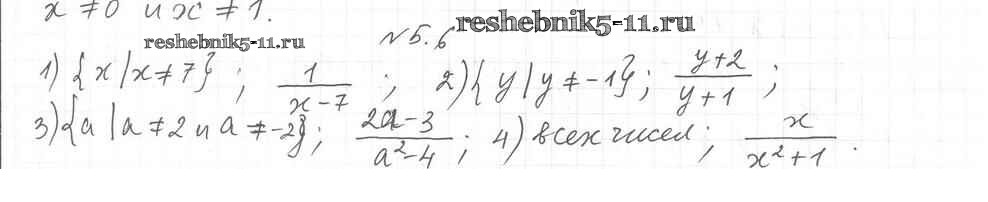 x ≠ 0 и x ≠ 1.
reshebnik5-11.ru
№5.6
reshebnik5-11.ru
1) {x | x ≠ 7}; 1/(x-7); 2) {y | y ≠ -1}; (y+2)/(y+1);
3) {a | a ≠ 2 и a ≠ -2}; (2a-3)/(a²-4); 4) всех чисел; x/(x²+1).